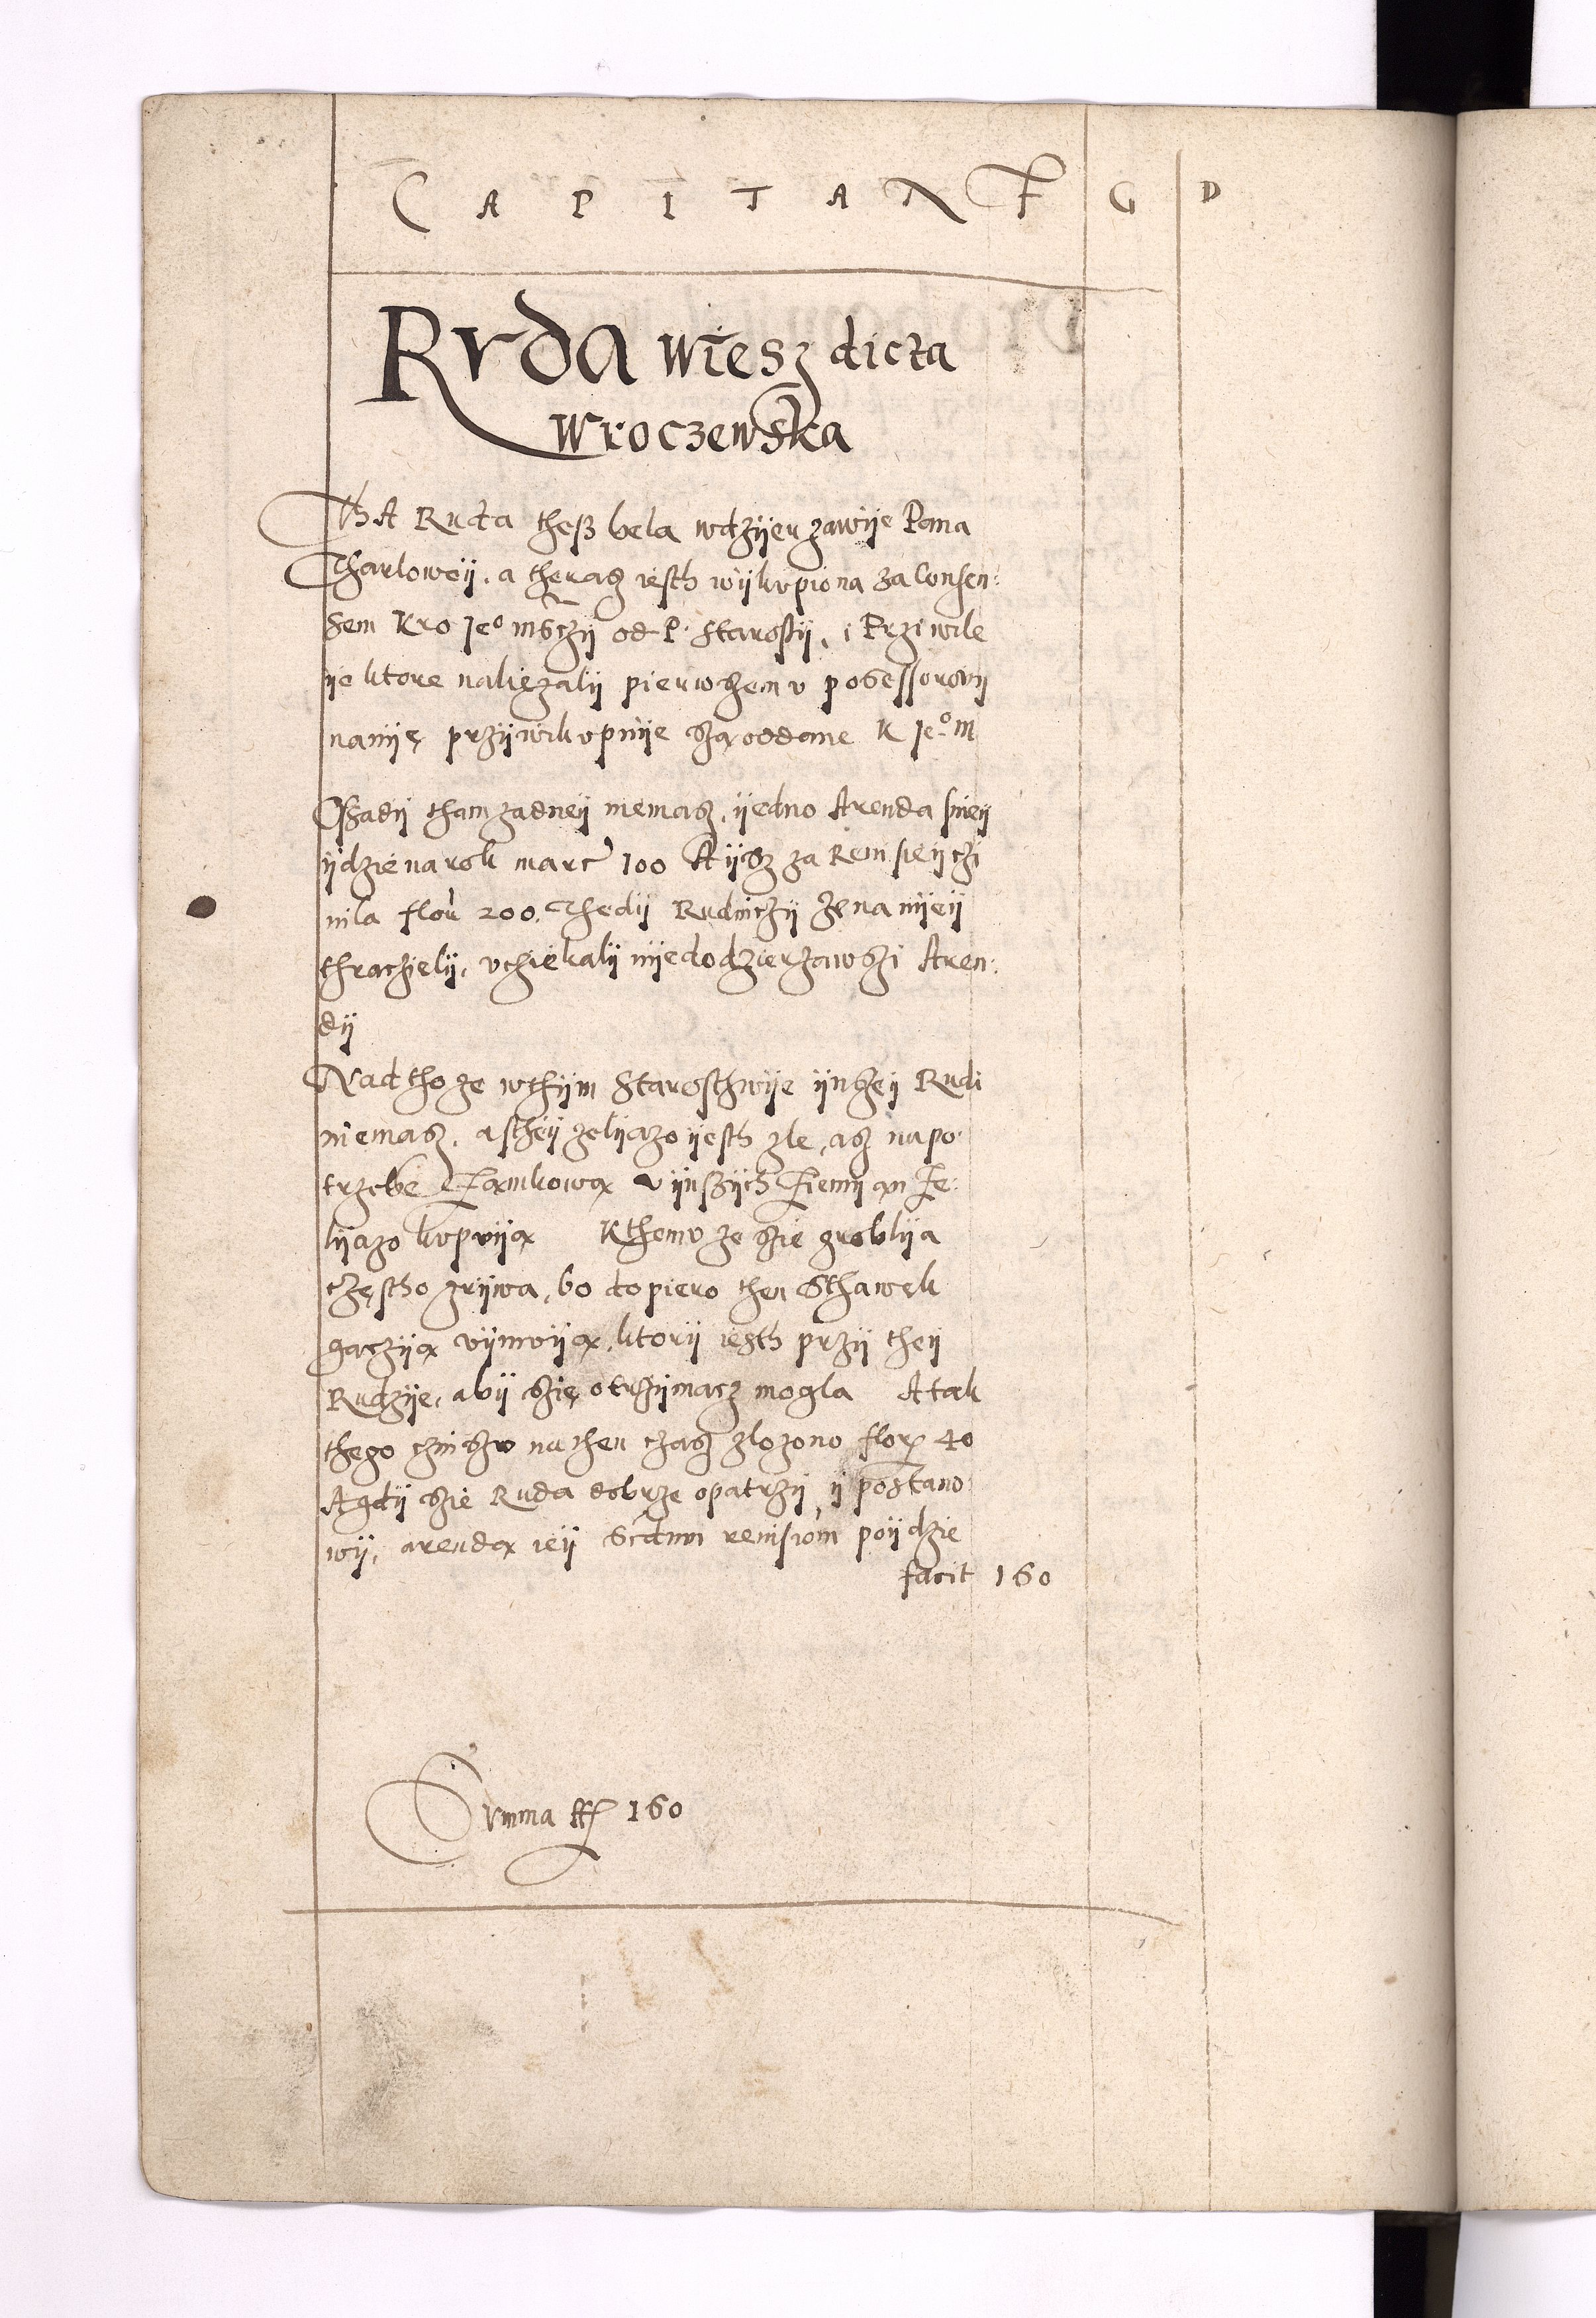 CAPITAN F G D
Rvda wiesz dicta
Wroczewska
Tha Ruda thesz bela wdzijerzawije Pana
Tharlowij, a therasz iesth wijkvpiona za Consen:
sem Kro Je° msczij od P. Starostij, i Prziwile
ije ktore należalij pierwszemv possessorowij
nanię przijwikvpnije sząoddane K Je° m
Oszadij tham zadneij niemasz, ijedno Arenda snieij
ijdzie na rok marc 100 Aijsz za Rem sieij czi
nila flor 200. Thedij Rudniczij że na nijeij
thraczielij, vciekalij nijedodzierzawszi Aren:
dij
Nad tho ze wthijm Starosthwije ijnszeij Rudi
niemasz, a stheij zelijazo iesth zle, asz na po:
trzebe Zamkowa v ijnszijch Ziemijan Ze:
lijazo kvpvija Kthemv ze szie groblija
często zrijwa, bo dopiero then Sthawek
gaczija vijmvija, ktorij iesth przij theij
Rudzije, abij szię otrzijmacz mogla A tak
thego czinszv na then czasz zlozono flor 40
A gdij szie Ruda dobrze opatrzij ij postano
wij, arenda ieij Scdnm remsiom poijdzie
facit 160
Svmma 160